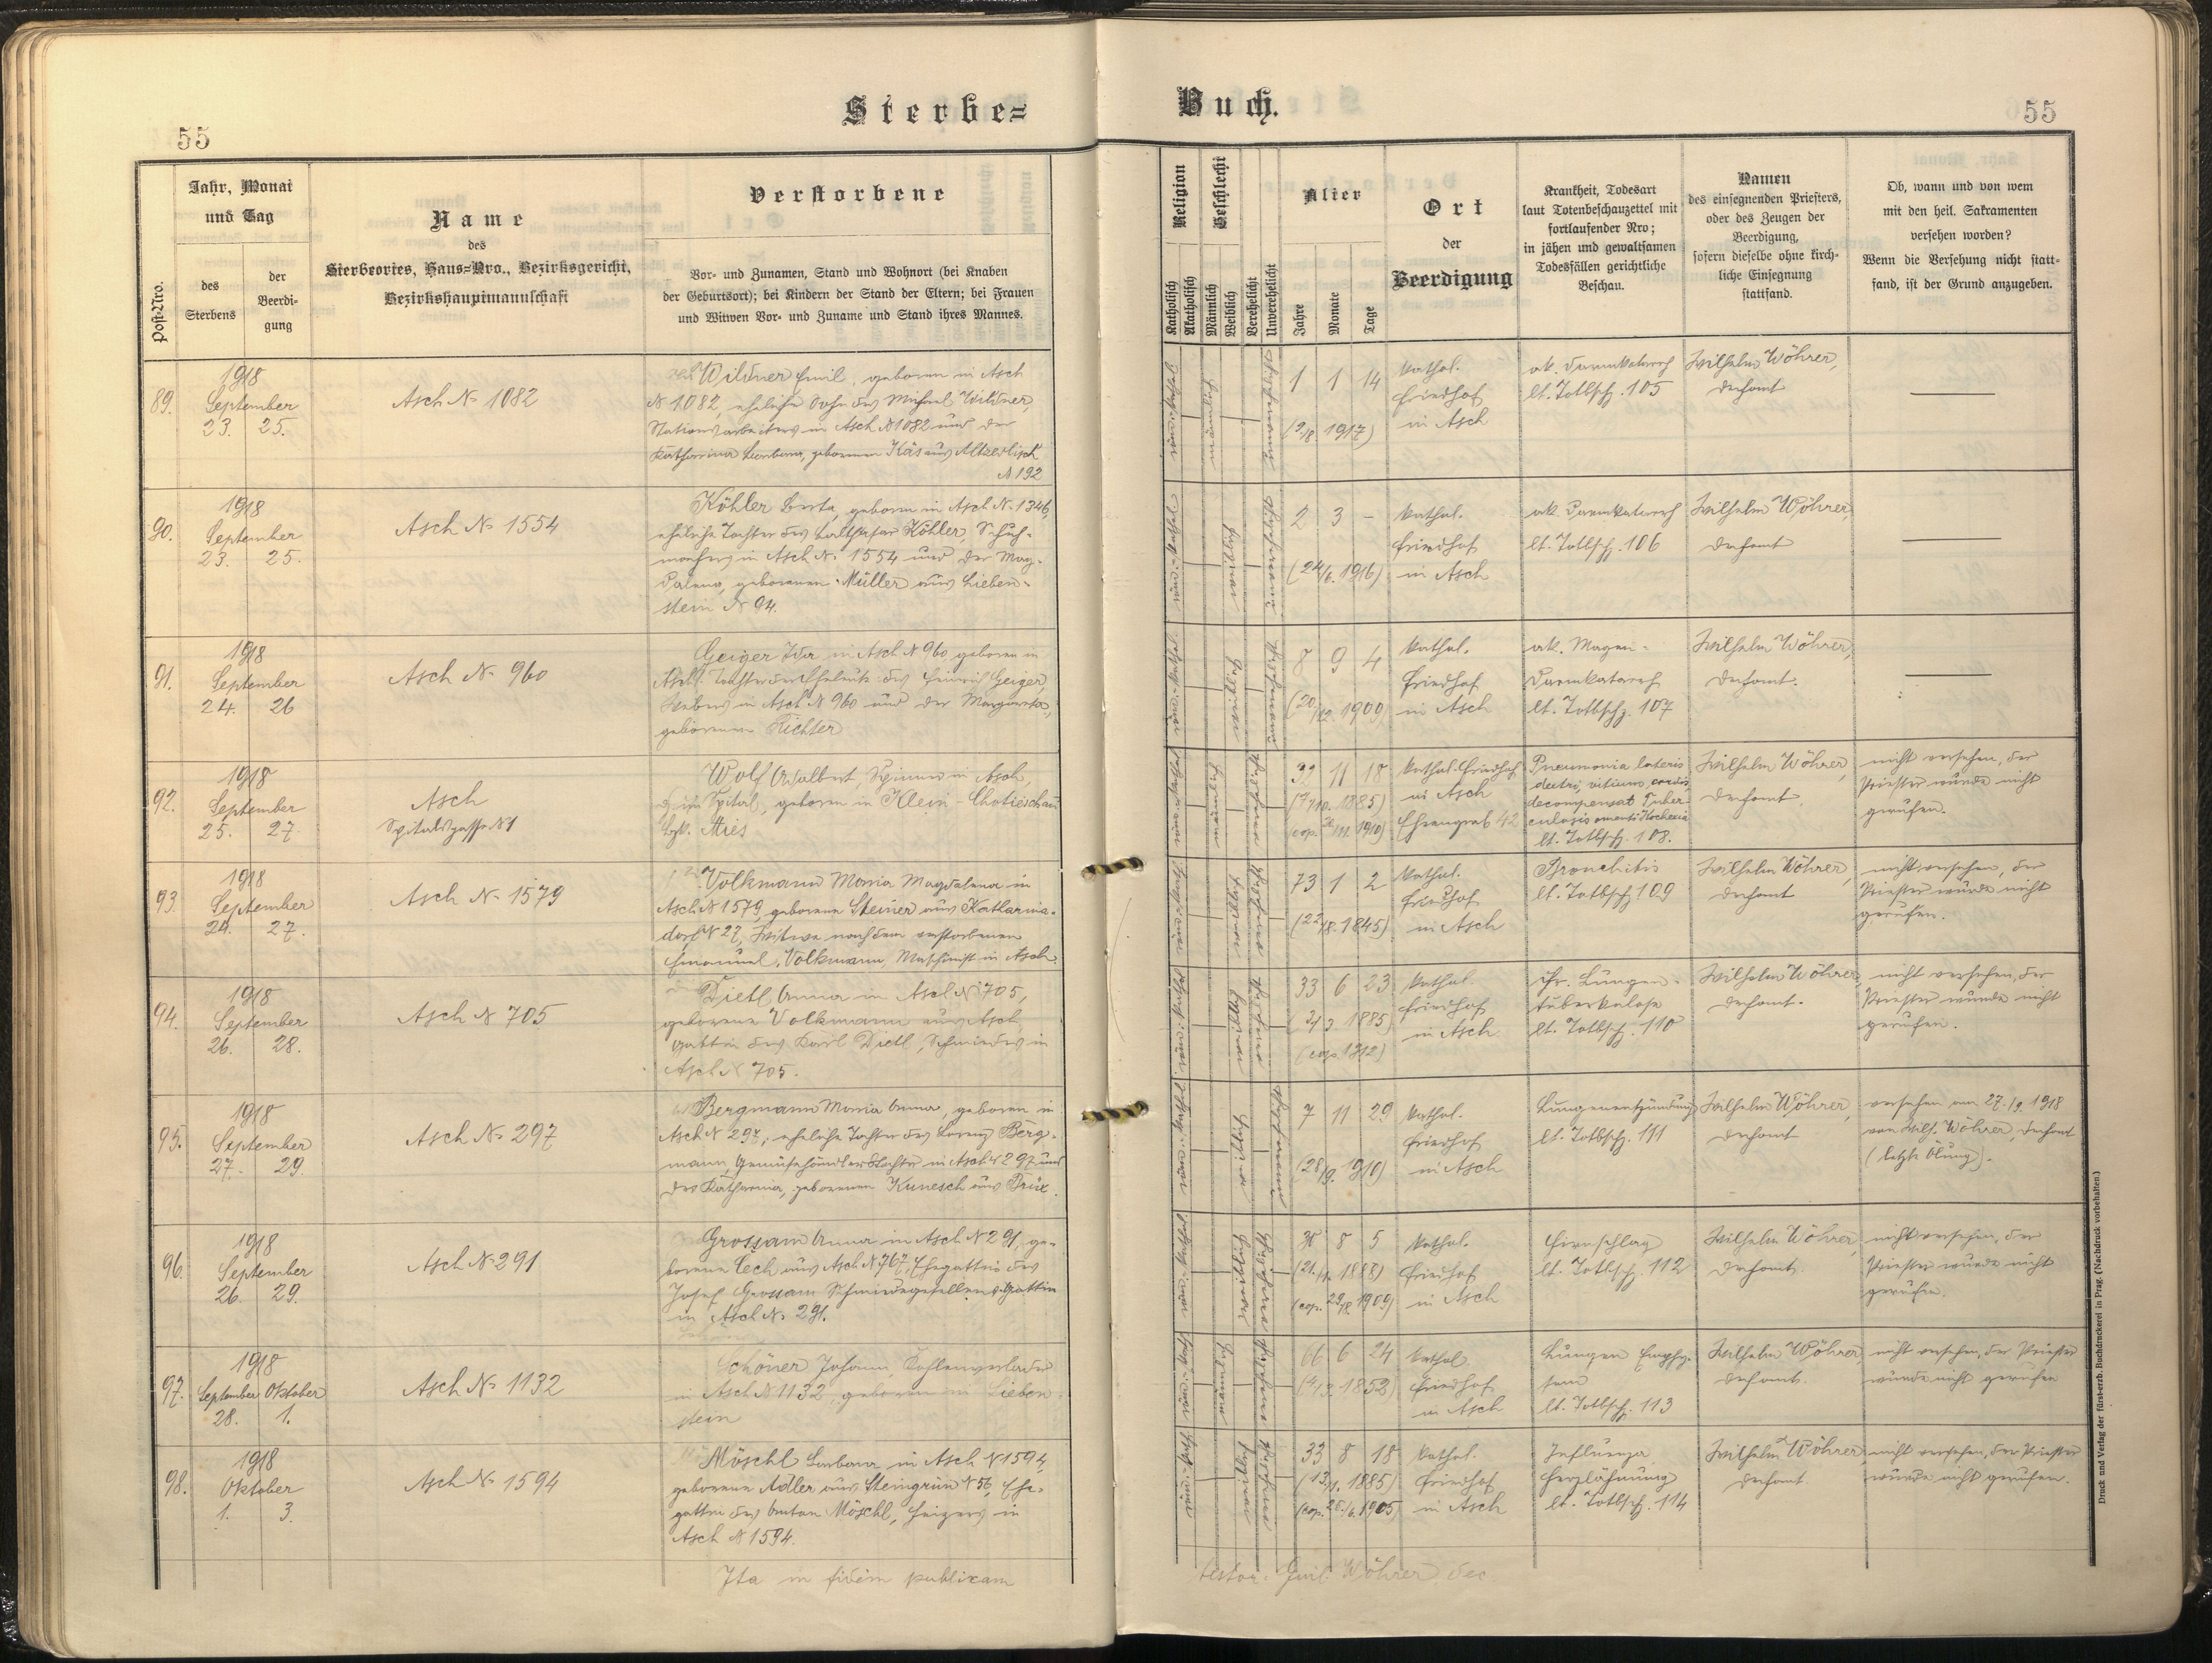 Sterbe=
Buch.
55
55
Post-Nro.
Jahr, Monat
und Tag
des
Sterbens
der
Beerdi-
gung
Name
des
Sterbeortes, Haus-Nro., Bezirksgericht,
Bezirkshauptmannschaft
Verstorbene
Vor- und Zunamen, Stand und Wohnort (bei Knaben
der Geburtsort); bei Kindern der Stand der Eltern; bei Frauen
und Witwen Vor- und Zuname und Stand ihres Mannes.
Religion
Katholisch
Akatholisch
Geschlecht
Männlich
Weiblich
Verehelicht
Unverehelicht
Alter
Jahre
Monate
Tage
Ort
der
Beerdigung
Krankheit, Todesart
laut Totenbeschauzettel mit
fortlaufender Nro;
in jähen und gewaltsamen
Todesfällen gerichtliche
Beschau.
Namen
des einsegnenden Priesters,
oder des Zeugen der
Beerdigung,
sofern dieselbe ohne kirch-
liche Einsegnung
stattfand.
Ob, wann und von wem
mit den heil. Sakramenten
versehen worden?
Wenn die Versehung nicht statt-
fand, ist der Grund anzugeben.
89.
1918
September
23. 25.
Asch N. 1082
Wildner Emil, geboren in Asch
N 1082, ehelicher Sohn des Michael Wildner,
Stationsarbeiters in Asch N 1082 und der
Katharina Barbara, geborenen Käs aus Altzedlisch
N 192
röm.-kathol.
männlich
1 1 14
(9/8. 1917)
kathol.
Friedhof
in Asch
ak. Darmkatarrh
lt. Totbsch. 105
Wilhelm Wöhrer,
Dechant
90.
1918
September
23. 25.
Asch N. 1554
Köhler Berta, geboren in Asch N. 1346,
eheliche Tochter des Balthasar Köhler, Schuh-
machers in Asch N. 1554 und der Mag-
dalena, geborenen Müller aus Lieben-
stein N 94.
röm.-kathol.
weiblich
2 3 -
(24/6. 1916)
kathol.
Friedhof
in Asch
ak. Darmkatarrh
lt. Totbsch. 106
Wilhelm Wöhrer,
Dechant
91.
1918
September
24. 26
Asch N. 960
Geiger Ida in Asch N 960, geboren in
Asch, Tochter der Eheleute: des Heinrich Geiger,
Webers in Asch N 960 und der Margareta,
geborenen Richter
röm.-kathol.
weiblich
8 9 4
(20./12. 1909)
kathol.
Friedhof
in Asch
ak. Magen-
Darmkatarrh
lt. Totbschz. 107
Wilhelm Wöhrer,
Dechant.
92.
1918
September
25. 27.
Asch
Spitalgasse N 1
Wolf Adalbert, Spinner in Asch,
geboren in Klein-Chotieschau
Bzk. Mies
männlich
32 11 18
(7/10. 1885)
1910)
kathol. Friedhof
in Asch
Ehrengrab 42
Pneumonia lateris
dextri, vitium cordis
decompensat Tuber-
culosis omenti Kachexia
lt. Totbsch. 108.
Wilhelm Wöhrer,
Dechant.
nicht versehen, der
Priester wurde nicht
gerufen.
93.
1918
September
24. 27.
Asch N. 1579
Volkmann Maria Magdalena in
Asch N 1579, geborene Steiner aus Katharina-
dorf N 27, Witwe nach dem verstorbenen
Emanuel Volkmann, Maschinist in Asch.
weiblich
73 1 2
(22/8. 1845)
kathol.
Friedhof
in Asch
Bronchitis
lt. Totbsch. 109
Wilhelm Wöhrer,
Dechant
nicht versehen, der
Priester wurde nicht
gerufen.
94.
1918
September
26. 28.
Asch N 705
Dietl Anna in Asch N 705,
geborene Volkmann aus Asch,
Gattin des Karl Dietl, Schmiedes in
Asch N 705.
weiblich
33 6 23
(3/3. 1885)
(cop. 1912)
kathol.
Friedhof
in Asch
chr. Lungen-
tuberkulose
lt. Totbsch. 110
Wilhelm Wöhrer,
Dechant.
nicht versehen, der
Priester wurde nicht
gerufen.
95.
1918
September
27. 29.
Asch N. 297
Bergmann Maria Anna, geboren in
Asch N 297, eheliche Tochter des Lorenz Berg-
mann, Gemüsehändlers Tochter in Asch N 297 und
der Katharina, geborenen Kunesch aus Brüx.
weiblich
7 11 29
(28/9. 1910)
kathol.
Friedhof
in Asch
Lungenentzündung
lt. Totbsch. 111
Wilhelm Wöhrer,
Dechant
versehen am 27./9. 1918
von Wilh. Wöhrer, Dechant
(letzte Ölung).
96.
1918
September
26. 29.
Asch N 291
Grossam Anna in Asch N 291, ge-
borene Lech aus Asch N 767, Ehegattin des
Josef Grossam Schmiedegesellens Gattin
in Asch N. 291.
weiblich
8 5
1888)
(cop. 1909)
kathol.
Friedhof
in Asch
Hirnschlag
lt. Totbsch. 112
Wilhelm Wöhrer,
Dechant.
nicht versehen, der
Priester wurde nicht
gerufen.
97.
1918
September Oktober
28. 1.
Asch N. 1132
Schöner Johann, Kohlenverlader
in Asch N 1132, geboren in Lieben-
stein
männlich
66 6 24
(4/3. 1852)
kathol.
Friedhof
in Asch
Lungen Emphy-
sem
lt. Totbsch. 113
Wilhelm Wöhrer,
Dechant.
nicht versehen, der Priester
wurde nicht gerufen
98.
1918
Oktober
1. 3.
Asch N. 1594
Möschl Barbara in Asch N 1594,
geborene Adler aus Steingrün N 56, Ehe-
gattin des Anton Möschl, Heizers in
Asch N 1594.
weiblich
33 8 18
(13/1. 1885)
(cop. 1905)
kathol.
Friedhof
in Asch
Influenza
Herzlähmung
lt. Totbsch. 114
Wilhelm Wöhrer,
Dechant.
nicht versehen, der Priester
wurde nicht gerufen.
Ita in fidem publicam
testor: Guil. Wöhrer, Dec.
Druck und Verlag der fürst-erzb. Buchdruckerei in Prag. (Nachdruck vorbehalten.)